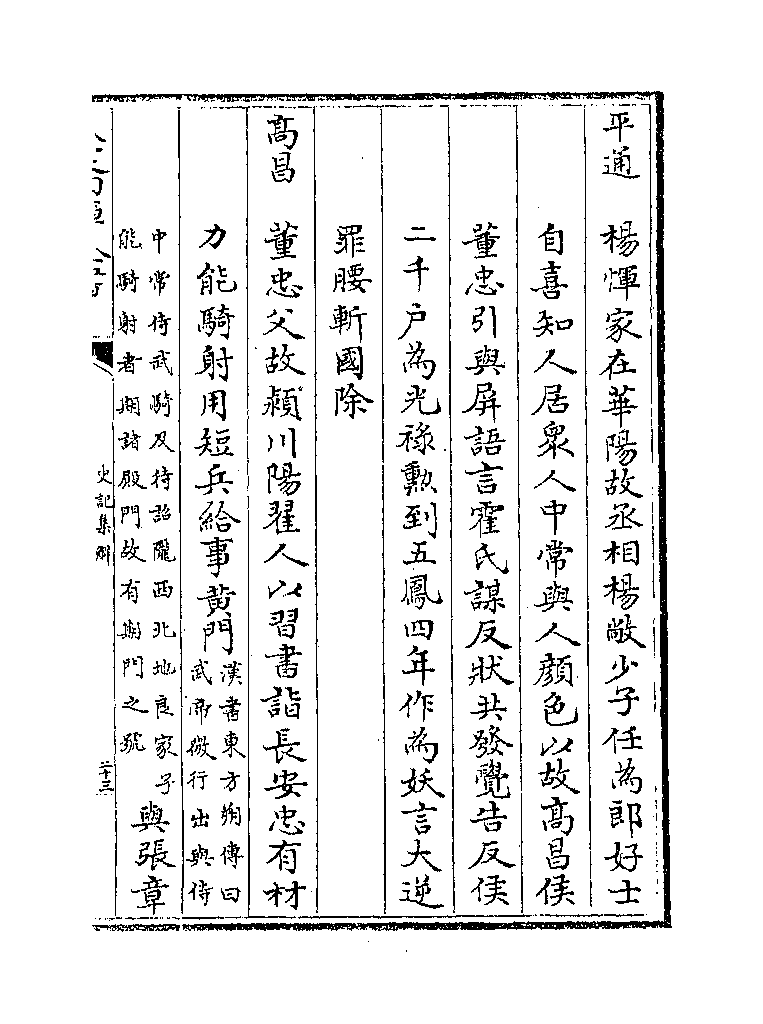 平通　楊惲家在華陽故丞相楊敞少子任為郎好士
自喜知人居衆人中常與人顔色以故髙昌侯
董忠引與屏語言霍氏謀反狀共發覺告反侯
二千户為光禄勲到五鳳四年作為妖言大逆
罪腰斬國除
髙昌　董忠父故潁川陽翟人以習書詣長安忠有材
力能騎射用短兵給事黄門漢書東方朔傳曰
武帝微行出與侍
中常侍武騎及待詔隴西北地良家子
能騎射者期諸殿門故有期門之號與張章
史記集解
二十三